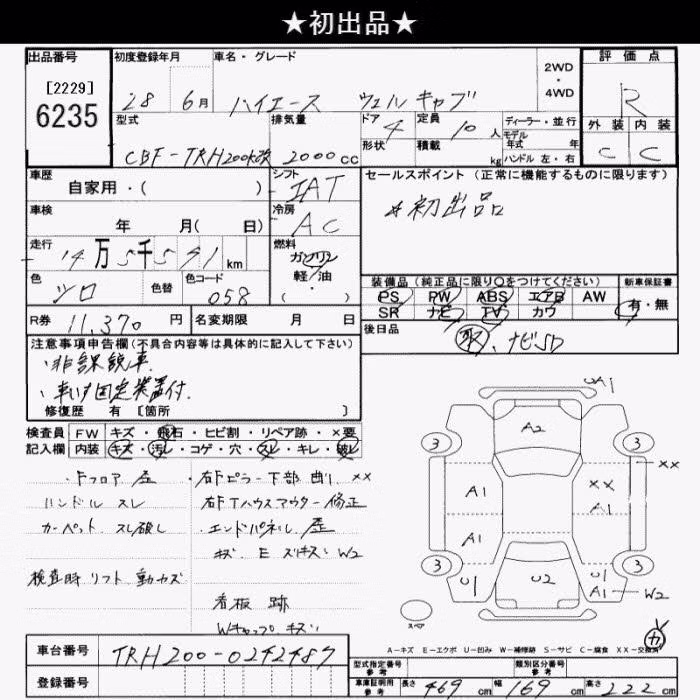 ★初出品★
出品番号
[2229]
6235
初度登録年月
28 6月
車名・グレード
ハイエース ウェルキャブ
2WD
・
4WD
評価点
R
外装 内装
C C
型式
CBF-TRH200K改
排気量
2000cc
ドア
4
形状
定員
10人
積載
kg
ディーラー・並行
モデル
年式 年
ハンドル 左・右
車歴
自家用・( )
シフト
IAT
セールスポイント(正常に機能するものに限ります)
☆初出品
車検
年 月( 日)
冷房
AC
走行
14万5千591km
燃料
ガソリン
軽油
・
色
シロ
色替
色コード
058
装備品(純正品に限り○をつけてください)
PS PW ABS エアB AW
SR ナビ TV カワ
新車保証書
有・無
R券
11,370円
名変期限 月 日
後日品
取、ナビSD
注意事項申告欄(不具合内容等は具体的に記入して下さい)
・非課税車
・車いす固定装置付
修復歴 有 [箇所 ]
検査員
記入欄
FW キズ・飛石・ヒビ割・リペア跡・×要
内装 キズ・汚レ・コゲ・穴・スレ・キレ・破レ
・Fフロア 歪
ハンドル スレ
カーペット スレ破レ
検査時 リフト 動カズ
右Fピラー下部 曲り ××
右Fタイヤハウスアウター 修正
・エンドパネル 歪
キズ E スリキズ W2
看板 跡
Wキャップ キズ
UA1
A2
3 3
××
A1 ××
A1
A1
3 3
U1 U2 U1
A1 W2
スペア
カ
A-キズ E-エクボ U-凹み W-補修跡 S-サビ C-腐食 XX-交換済
車台番号
TRH200-0242487
登録番号
型式指定番号
参考
類別区分番号
参考
車庫証明用
参考
長さ 469cm 幅 169cm 高さ 222cm